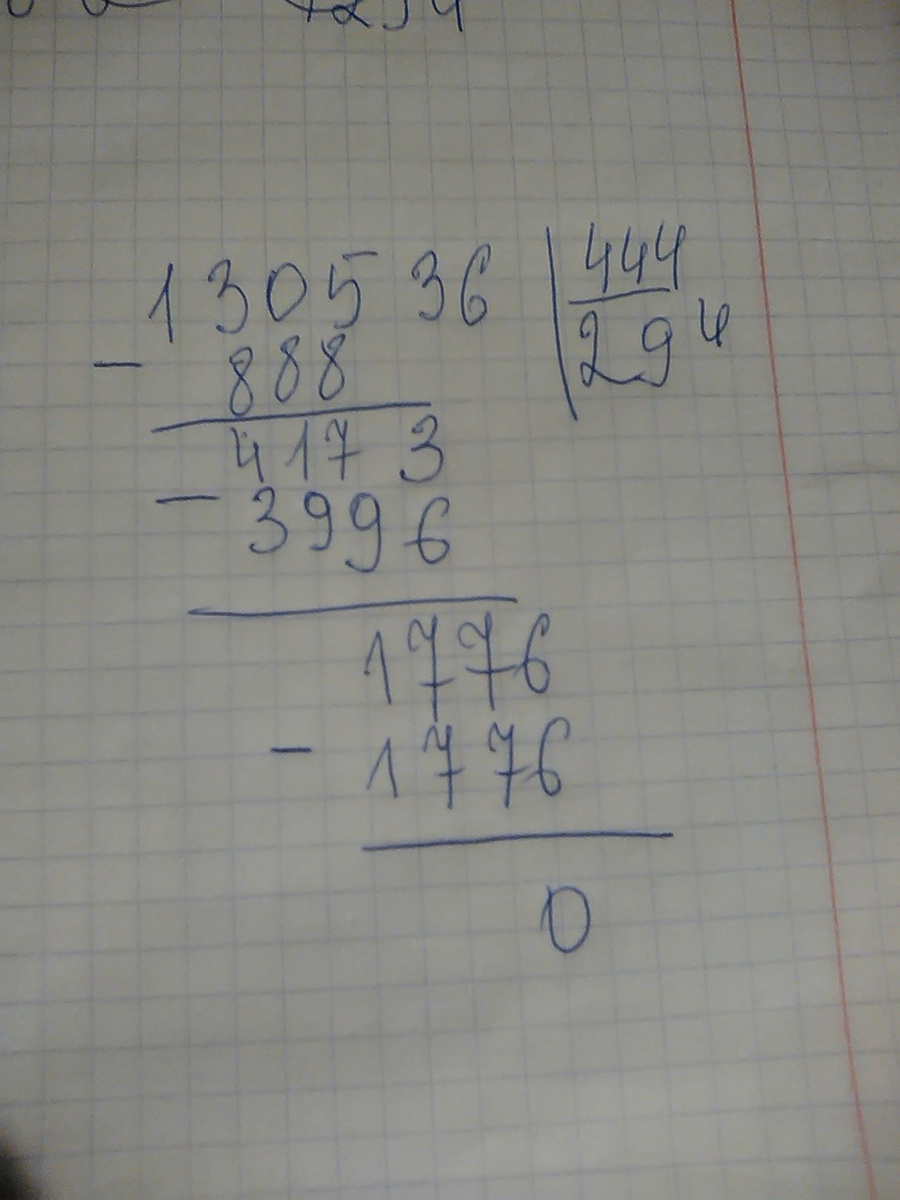 130536 | 444
- 888 294
4173
- 3996
1776
- 1776
0